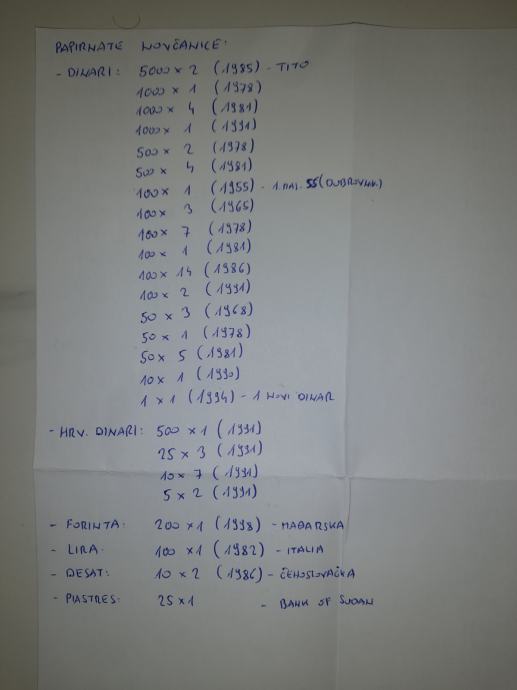 PAPIRNATE NOVČANICE:
- DINARI: 5000 x 2 (1985) - TITO
1000 x 1 (1978)
1000 x 4 (1981)
1000 x 1 (1991)
500 x 2 (1978)
500 x 4 (1981)
100 x 1 (1955) - 1. MAJ. 55 (DUBROVNIK)
100 x 3 (1965)
100 x 7 (1978)
100 x 1 (1981)
100 x 14 (1986)
100 x 2 (1991)
50 x 3 (1968)
50 x 1 (1978)
50 x 5 (1981)
10 x 1 (1990)
1 x 1 (1994) - 1 NOVI DINAR
- HRV. DINARI: 500 x 1 (1991)
25 x 3 (1991)
10 x 7 (1991)
5 x 2 (1991)
- FORINTA: 200 x 1 (1998) - MAĐARSKA
- LIRA: 100 x 1 (1982) - ITALIA
- DESAT: 10 x 2 (1986) - ČEHOSLOVAČKA
- PIASTRES: 25 x 1 - BANK OF SUDAN